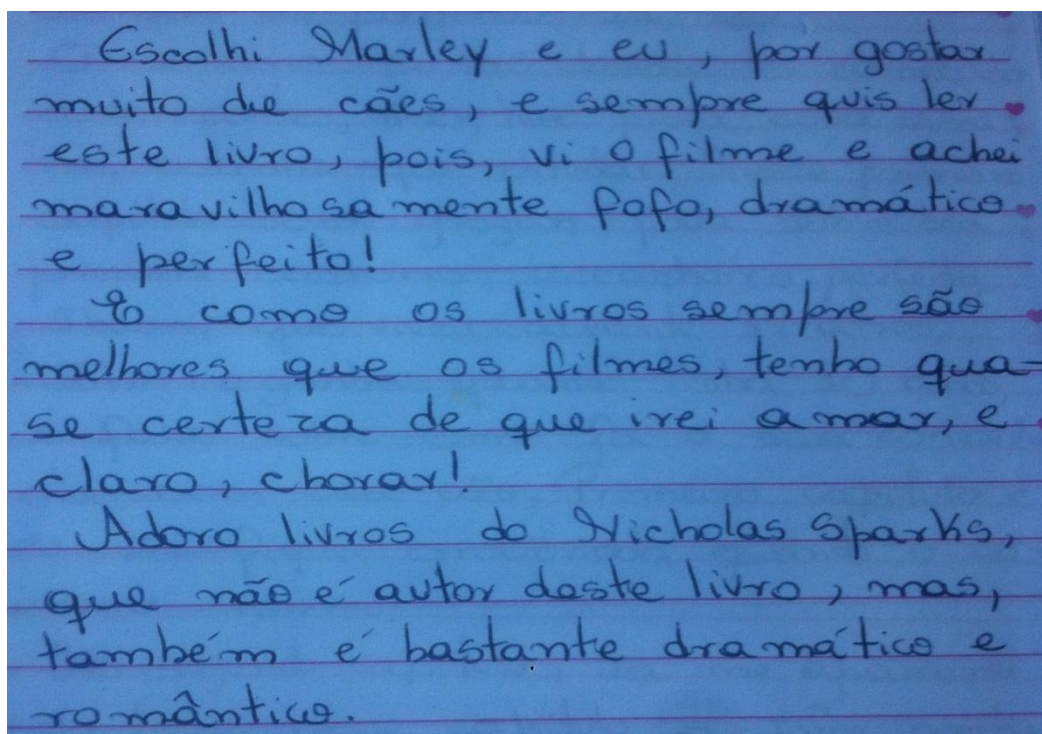 Escolhi Marley e eu, por gostar
muito de cães, e sempre quis ler
este livro, pois, vi o filme e achei
maravilhosamente fofo, dramático
e perfeito!
E como os livros sempre são
melhores que os filmes, tenho qua-
se certeza de que irei amar, e
claro, chorar!
Adoro livros do Nicholas Sparks,
que não é autor deste livro, mas,
também é bastante dramático e
romântico.